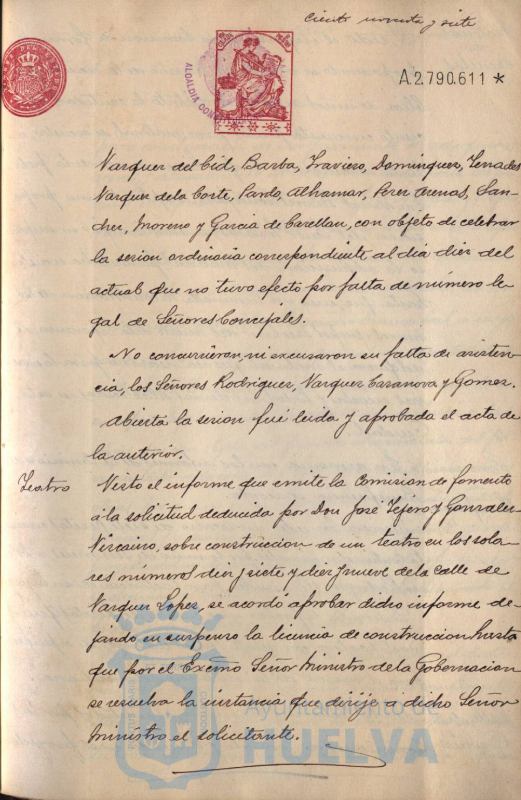 Ciento noventa y siete
A.2.790.611 *
ALCALDIA CON
Vazquez del Cid, Barba, Traviezo, Dominguez, Terrades
Vazquez de la Corte, Pardo, Alhamar, Perez Arenas, San-
chez, Moreno y Garcia de Carellan, con objeto de celebrar
la sesion ordinaria correspondiente al dia diez del
actual que no tuvo efecto por falta de número le-
gal de Señores Concejales.
No concurrieron, ni excusaron su falta de asisten-
cia, los Señores Rodriguez, Vazquez Casanova y Gomez.
Abierta la sesion fué leida y aprobada el acta de
la anterior.
Teatro
Visto el informe que emite la Comision de fomento
á la solicitud deducida por Don José Tejero y Gonzalez
Vizcaino, sobre construccion de un teatro en los sola-
res números diez y siete y diez y nueve de la calle de
Vazquez Lopez, se acordó aprobar dicho informe de-
jando en suspenso la licencia de construccion hasta
que por el Excmo Señor Ministro de la Gobernacion
se resuelva la instancia que dirije a dicho Señor
Ministro el solicitante.
Ayuntamiento de
HUELVA